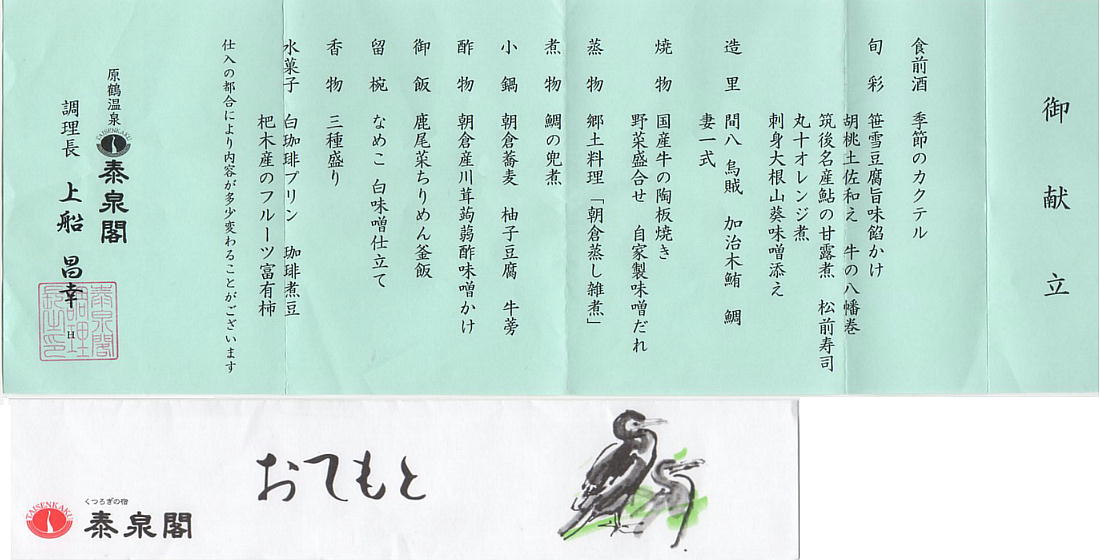 御献立
食前酒 季節のカクテル
旬彩 笹雪豆腐旨味餡かけ
胡桃土佐和え 牛の八幡巻
筑後名産鮎の甘露煮 松前寿司
丸十オレンジ煮
刺身大根山葵味噌添え
造里 間八 烏賊 加治木鮪 鯛
妻一式
焼物 国産牛の陶板焼き
野菜盛合せ 自家製味噌だれ
蒸物 郷土料理「朝倉蒸し雑煮」
煮物 鯛の兜煮
小鍋 朝倉蕎麦 柚子豆腐 牛蒡
酢物 朝倉産川茸蒟蒻酢味噌かけ
御飯 鹿尾菜ちりめん釜飯
留椀 なめこ 白味噌仕立て
香物 三種盛り
水菓子 白珈琲プリン 珈琲煮豆
杷木産のフルーツ富有柿
仕入の都合により内容が多少変わることがございます
原鶴温泉
TAISENKAKU
泰泉閣
調理長 上船 昌幸
泰泉閣
調理
長之印
おてもと
TAISENKAKU
くつろぎの宿
泰泉閣